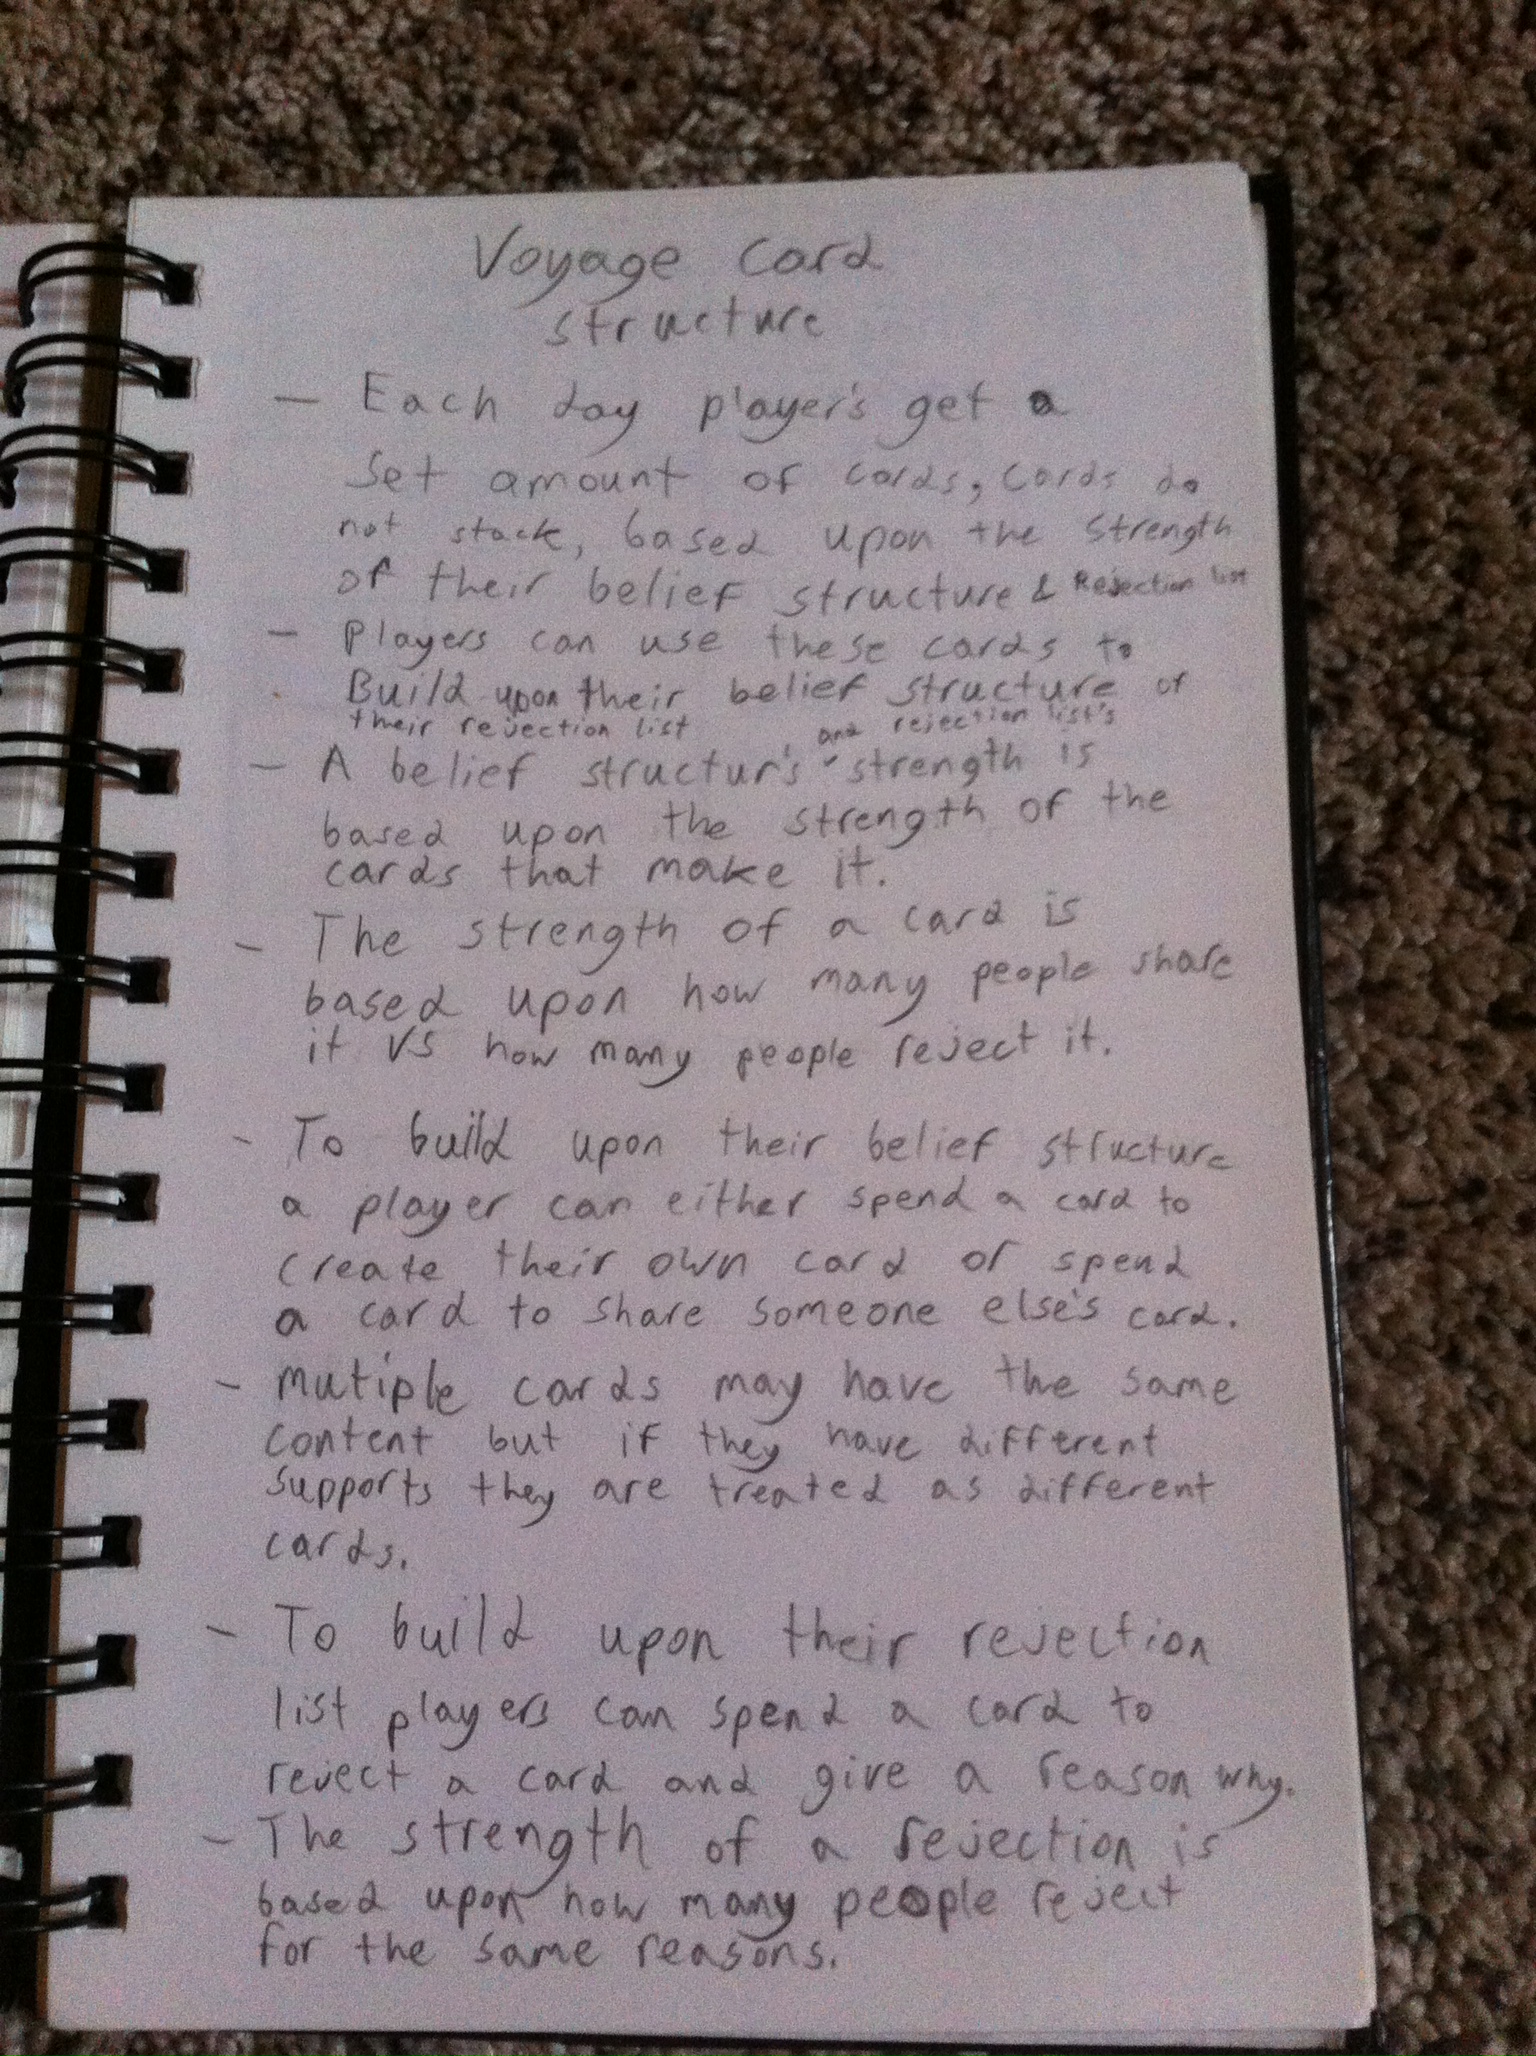 Voyage Card
structure
- Each day player's get a
set amount of cards, cards do
not stack, based upon the strength
of their belief structure & Rejection list
- Players can use these cards to
Build upon their belief structure or
their rejection list
and rejection list's
- A belief structur's strength is
based upon the strength of the
cards that make it.
- The strength of a card is
based upon how many people share
it VS how many people reject it.
- To build upon their belief structure
a player can either spend a card to
create their own card or spend
a card to share someone else's card.
- mutiple cards may have the same
content but if they have different
supports they are treated as different
cards.
- To build upon their rejection
list players can spend a card to
reject a card and give a reason why.
- The strength of a rejection is
based upon how many people reject
for the same reasons.